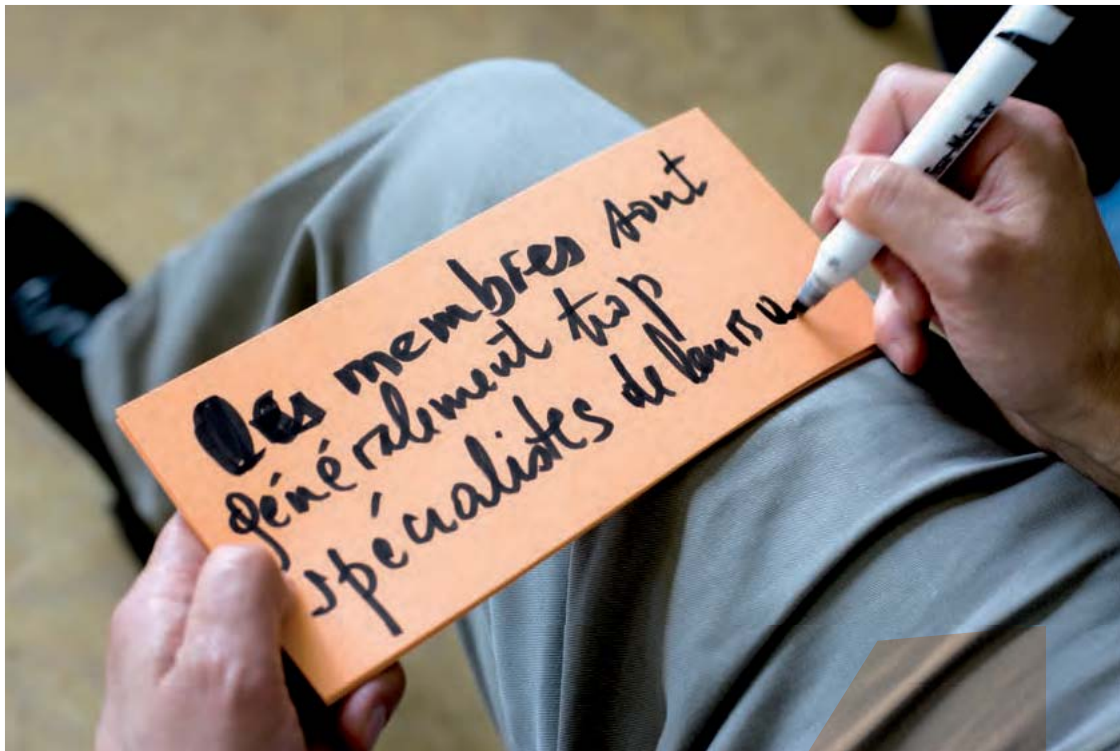 Des membres sont
généralement trop
spécialistes de leurs